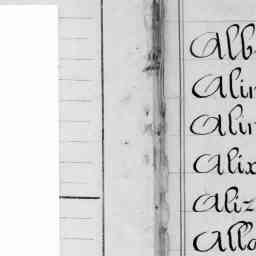 Alb
Alin
Alin
Alix
Aliz
Allo